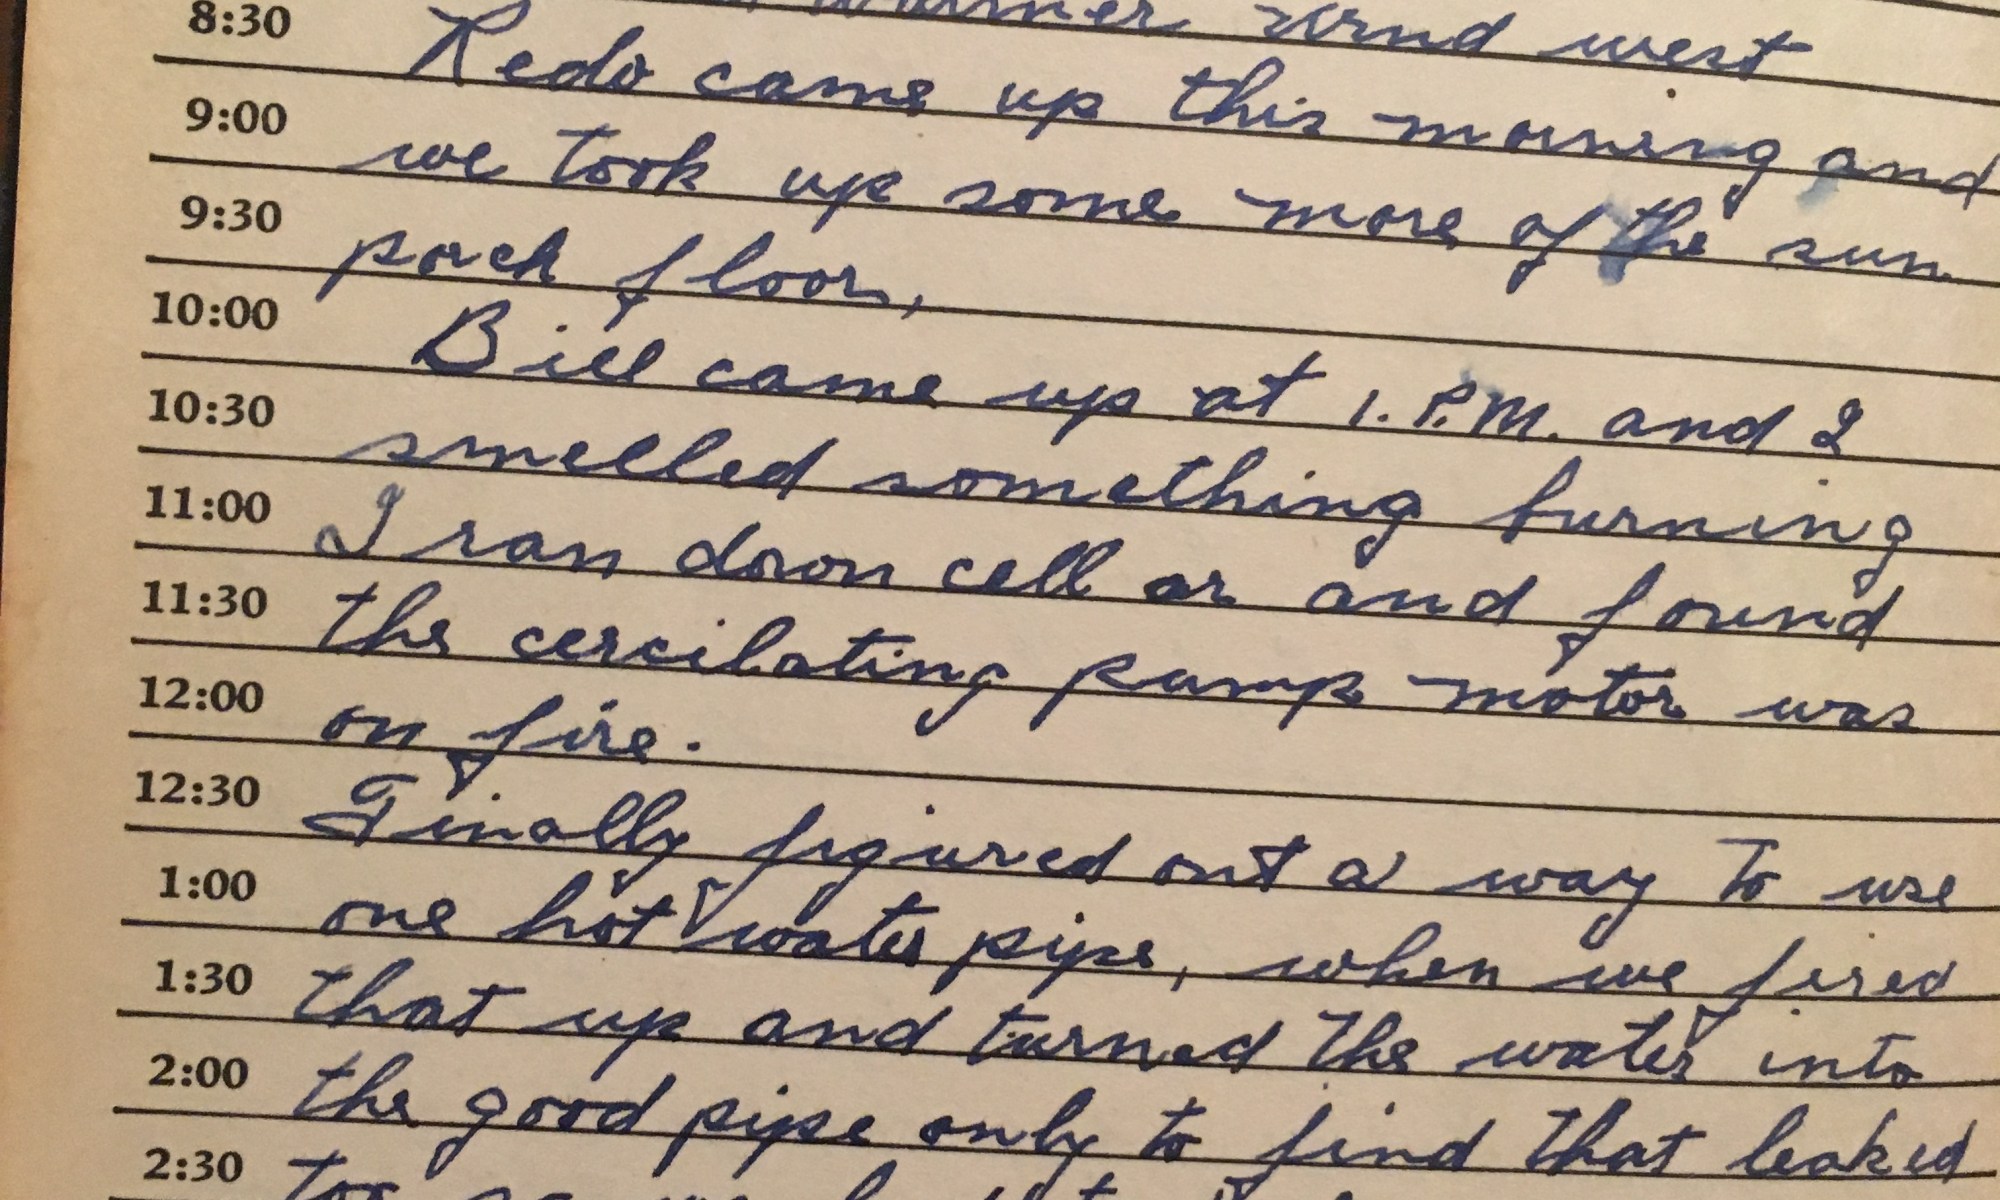 8:30 warmer Wind west
Redo came up this morning and
9:00 we took up some more of the sun
9:30 porch floor,
10:00 Bill came up at 1. P.M. and I
10:30 smelled something burning
11:00 I ran down cell ar and found
11:30 the cercilating pump motor was
12:00 on fire.
12:30 Finally figured out a way to use
1:00 one hot water pipe, when we fired
1:30 that up and turned the water into
2:00 the good pipe only to find that leaked
2:30 too so we